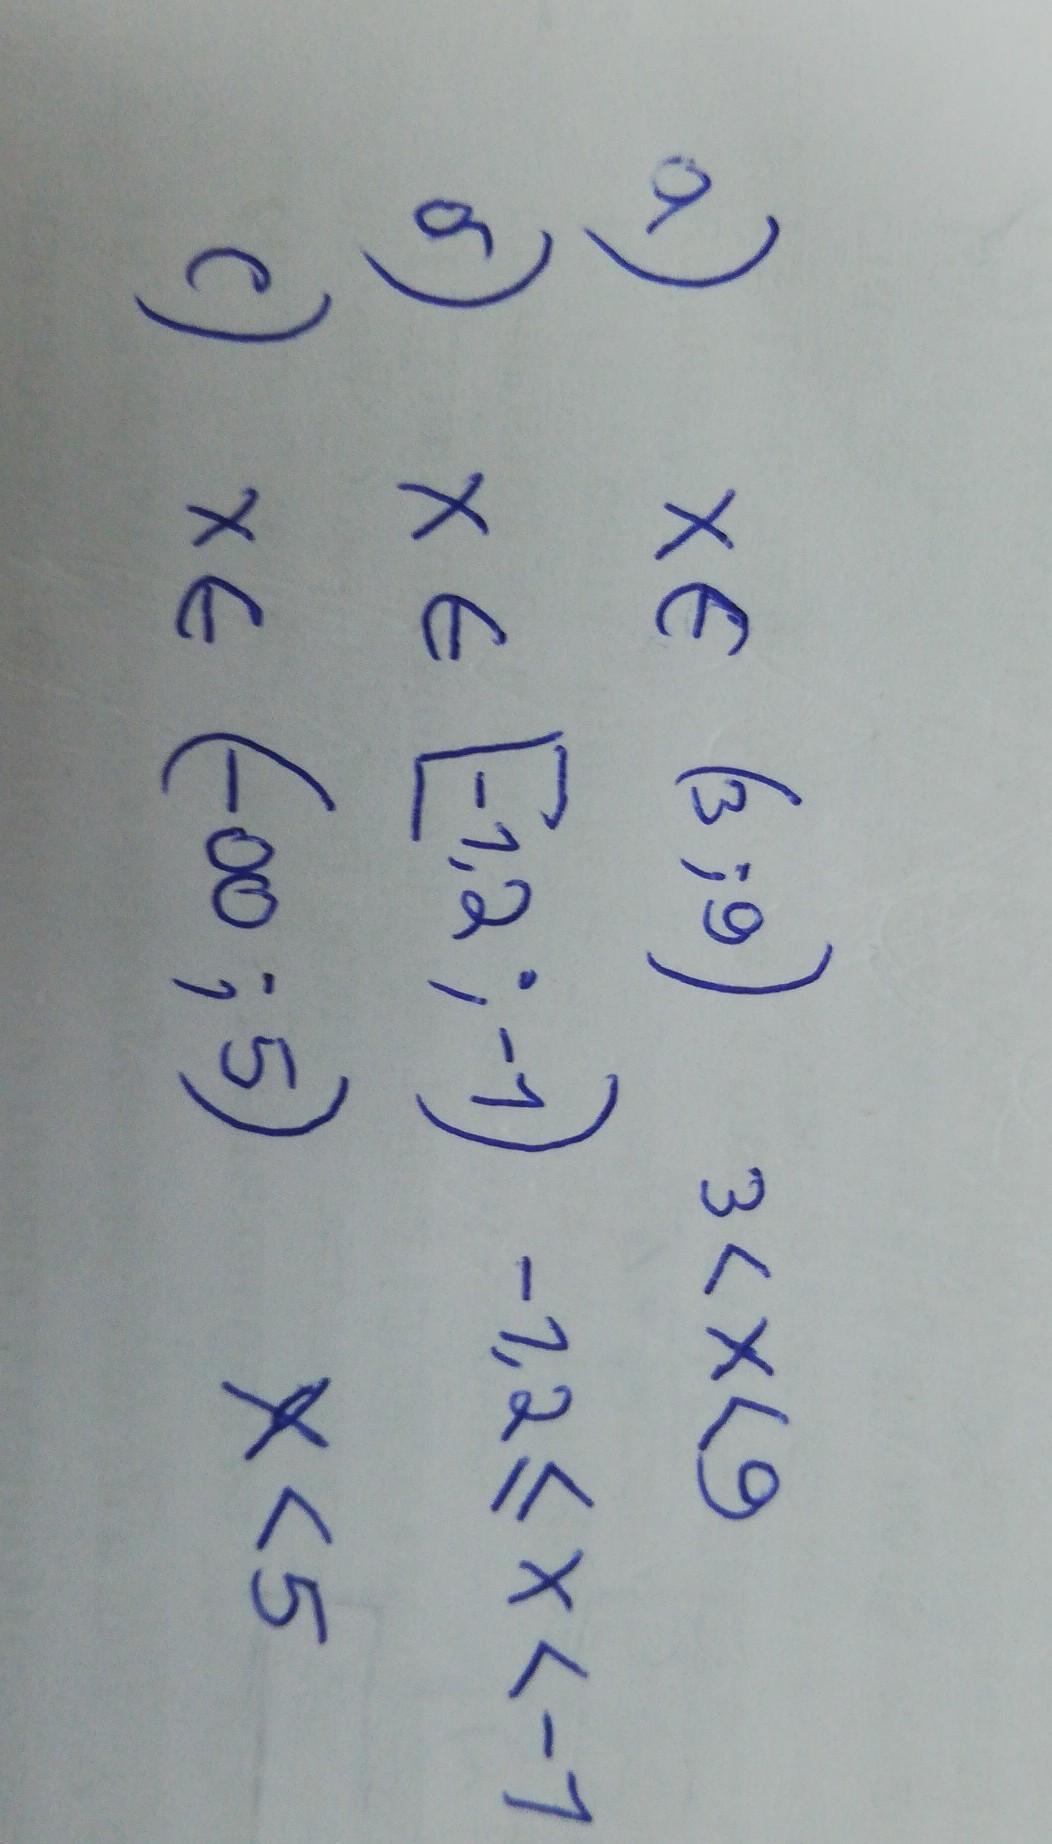 a) x ∈ (3 ; 9) 3 < x < 9
б) x ∈ [-1,2 ; -1) -1,2 ≤ x < -1
c) x ∈ (-∞ ; 5) x < 5